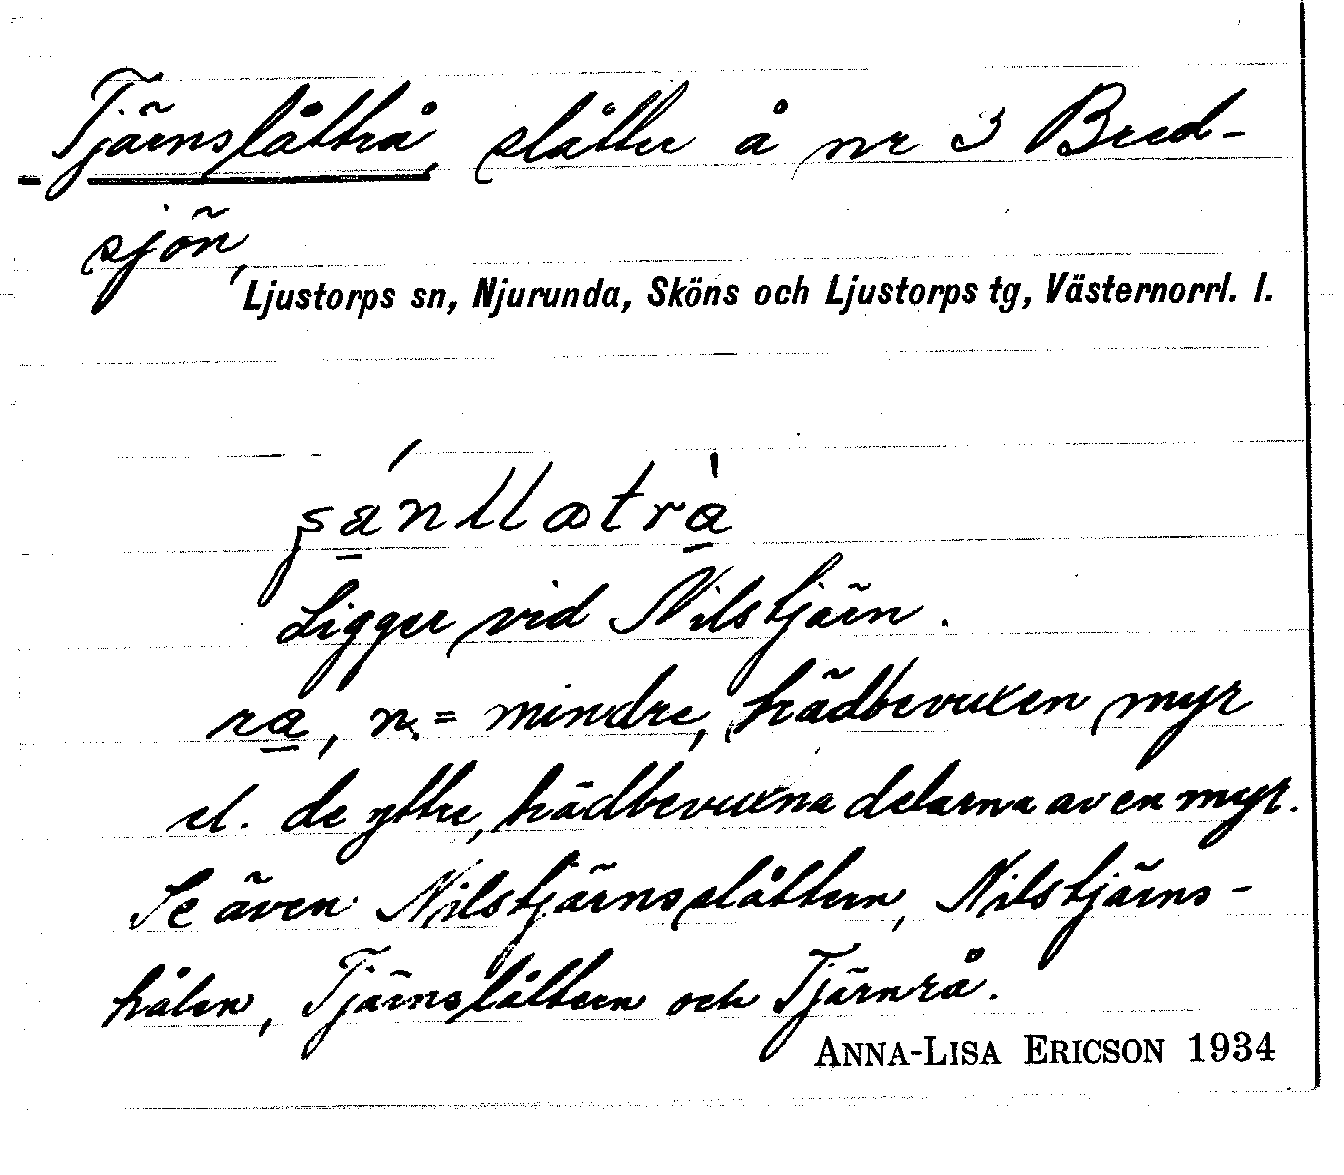 Tjärnslåttrå, slåtter å nr 3 Bred-
sjön,
Ljustorps sn, Njurunda, Sköns och Ljustorps tg, Västernorrl. l.
Ligger vid Nilstjärn.
ra, n. = mindre, trädbevuxen myr
el. de yttre, trädbevuxna delarna av en myr.
Se även Nilstjärnsslåttern, Nilstjärns-
hålen, Tjärnslåttern och Tjärnrå.
ANNA-LISA ERICSON 1934